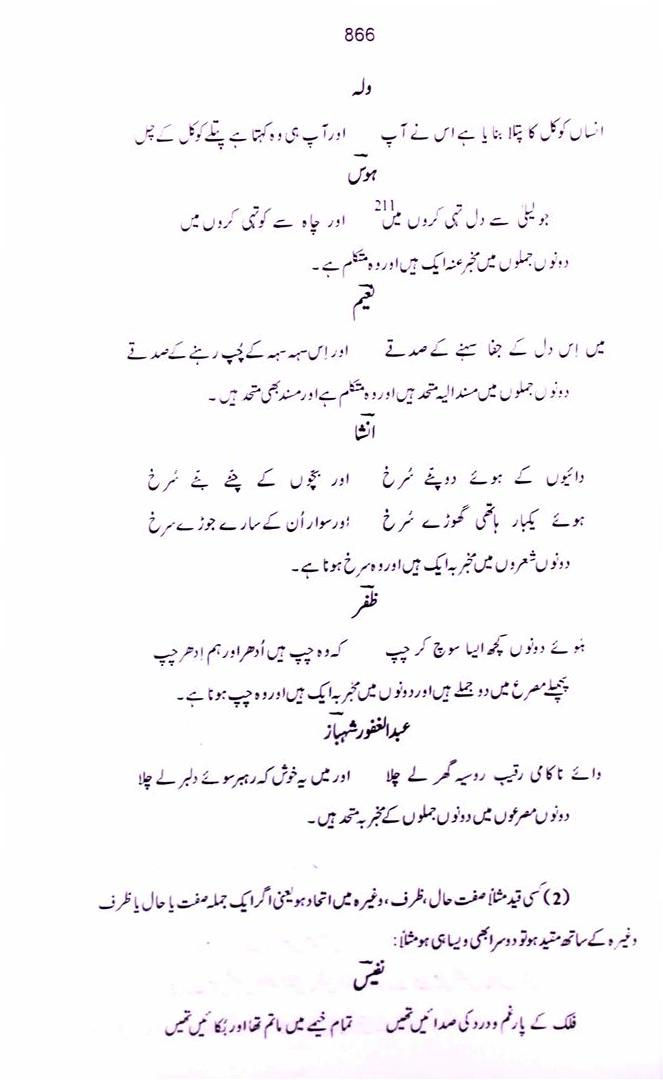 866
ولہ
انساں کو کل کا پتلا بنایا ہے اس نے آپ اور آپ ہی وہ کہتا ہے پتلے کو کل کے چل
ہوس
جو لیلیٰ سے دل تہی کروں میں211 اور چاہ سے کوتہی کروں میں
دونوں جملوں میں مخبر عنہ ایک ہیں اور وہ متکلم ہے۔
نعیم
میں اِس دل کے جفا سہنے کے صدقے اور اِس سہہ سہہ کے چُپ رہنے کے صدقے
دونوں جملوں میں مسند الیہ متحد ہیں اور وہ متکلم ہے اور مسند بھی متحد ہیں۔
انشا
دائیوں کے ہوئے دوپٹے سُرخ اور بچّوں کے چٹے بٹے سُرخ
ہوئے یکبار ہاتھی گھوڑے سُرخ اور سوار اُن کے سارے جوڑے سرخ
دونوں شعروں میں مخبر بہ ایک ہیں اور وہ سرخ ہونا ہے۔
ظفر
ہوئے دونوں کچھ ایسا سوچ کر چپ کہ وہ چپ ہیں اُدھر اور ہم اِدھر چپ
پچھلے مصرع میں دو جملے ہیں اور دونوں میں مخبر بہ ایک ہیں اور وہ چپ ہونا ہے۔
عبدالغفور شہباز
وائے ناکامی رقیب روسیہ گھر لے چلا اور میں یہ خوش کہ رہبر سوئے دلبر لے چلا
دونوں مصرعوں میں دونوں جملوں کے مخبر بہ متحد ہیں۔
(2) کسی قید مثلاً صفت حال، ظرف، وغیرہ میں اتحاد ہو یعنی اگر ایک جملہ صفت یا حال یا ظرف
وغیرہ کے ساتھ مقید ہو تو دوسرا بھی ویسا ہی ہو مثلاً:
نفیس
فلک کے پار غم و درد کی صدائیں تھیں تمام خیمے میں ماتم تھا اور بُکائیں تھیں